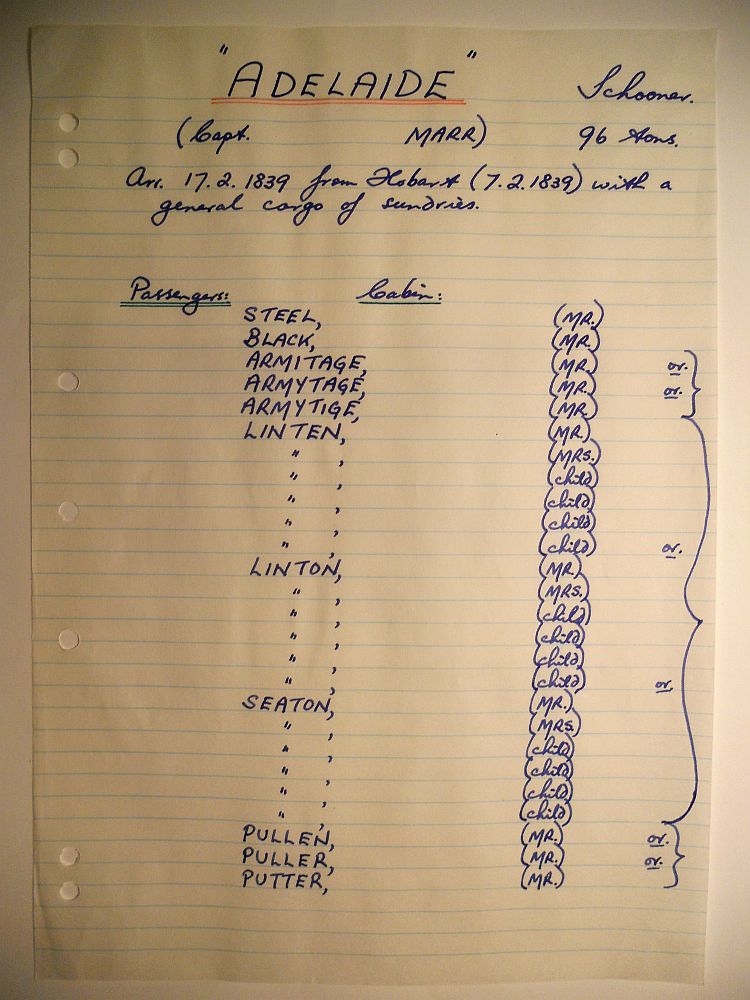 "ADELAIDE" Schooner.
(Capt. MARR) 96 tons.
Arr. 17.2.1839 from Hobart (7.2.1839) with a
general cargo of sundries.
Passengers: Cabin:
STEEL, (MR.)
BLACK, (MR.)
ARMITAGE, (MR.) or.
ARMYTAGE, (MR.) or.
ARMYTIGE, (MR.)
LINTEN, (MR.)
" , (MRS.)
" , (child)
" , (child)
" , (child)
" , (child) or.
LINTON, (MR.)
" , (MRS.)
" , (child)
" , (child)
" , (child)
" , (child) or.
SEATON, (MR.)
" , (MRS.)
" , (child)
" , (child)
" , (child)
" , (child)
PULLEN, (MR.) or.
PULLER, (MR.) or.
PUTTER, (MR.)